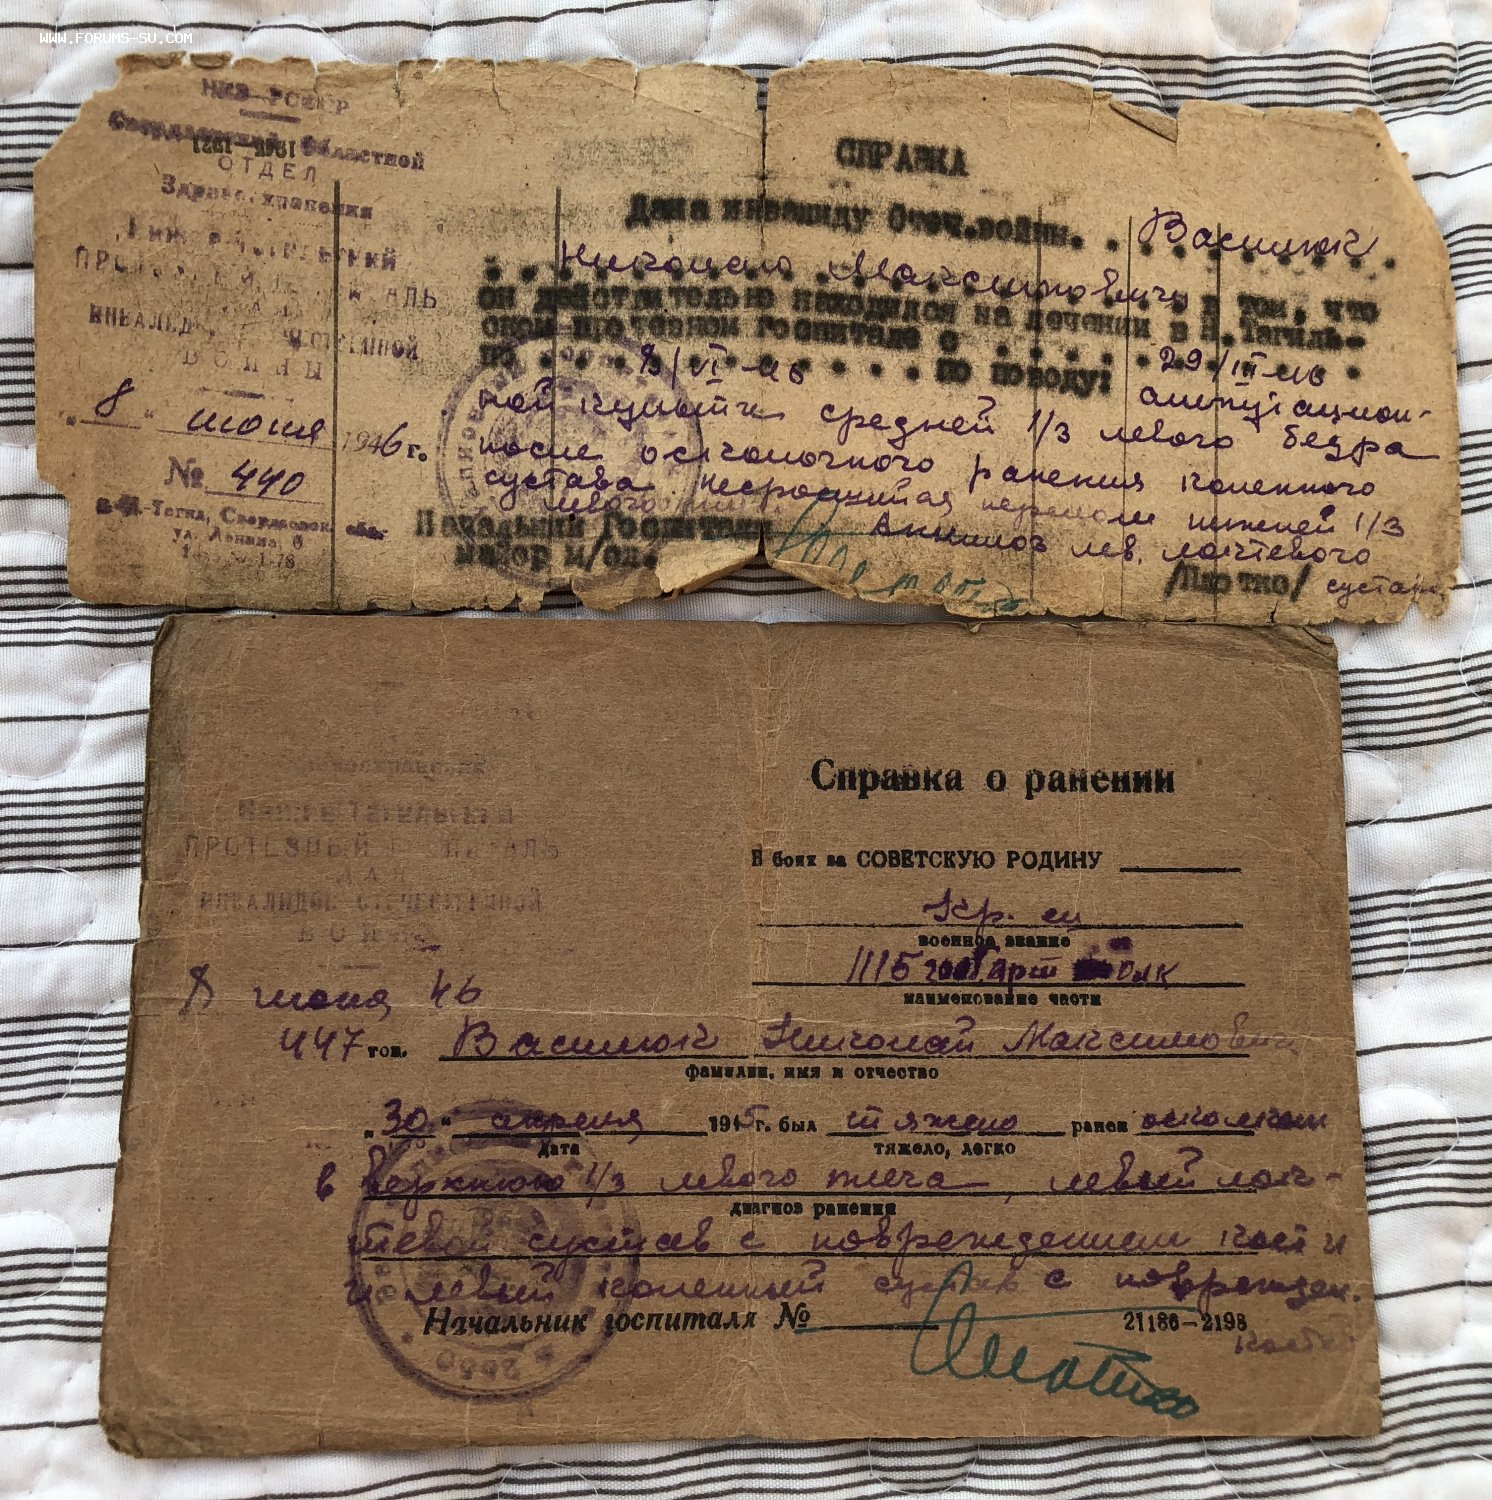 WWW.FORUMS-SU.COM
НКЗ РСФСР
Свердловский Областной
ОТДЕЛ
Здравоохранения
Нижне-Тагильский
ПРОТЕЗНЫЙ ГОСПИТАЛЬ
ИНВАЛИДОВ ОТЕЧЕСТВЕННОЙ
ВОЙНЫ
"8" июня 1946 г.
№ 440
г. Н-Тагил, Свердловск. обл.
ул. Ленина, 6
1-78
СПРАВКА
Дана инвалиду Отеч.войны. . Василюк
Николаю Максимовичу в том, что
он действительно находился на лечении в Н.Тагиль-
ском протезном госпитале с 29/III-46
по 8/VI-46 по поводу: ампутацион-
ной культи средней 1/3 левого бедра
после осколочного ранения коленного
сустава. несросшийся перелом нижней 1/3
левого Анкилоз лев. локтевого
сустава
Начальник Госпиталя
майор м/сл.
Справка о ранении
В боях за СОВЕТСКУЮ РОДИНУ
Кр-ец
военное звание
1115 арт полк
наименование части
Нижне Тагильский
ПРОТЕЗНЫЙ ГОСПИТАЛЬ
ДЛЯ
ИНВАЛИДОВ ОТЕЧЕСТВЕННОЙ
ВОЙНЫ
8 июня 46
447 тов. Василюк Николай Максимович
фамилия, имя и отчество
„30" апреля 1945 г. был тяжело ранен осколком
дата тяжело, легко
в верхнюю 1/3 левого плеча, левый лок-
диагноз ранения
тевой сустав с повреждением кости
и левый коленный сустав с поврежден.
кости
Начальник госпиталя № 21186-2198